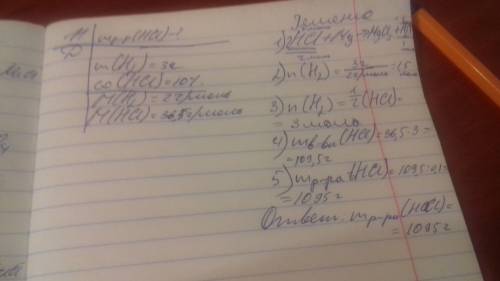 Н mр-р(HCl)-?
Д
m(H₂)=3г
ω(HCl)=10%
M(H₂)=2г/моль
M(HCl)=36,5г/моль
Решение
1) 2HCl+Mg→MgCl₂+H₂
2 моль 1
2) n(H₂)=3г/2г/моль=1,5
моль
3) n(H₂)=1/2(HCl)=
=3моль
4) mв-ва(HCl)=36,5·3=
=109,5г
5) mр-ра(HCl)=109,5:0,1=
=1095г
Ответ: mр-ра(HCl)=
=1095г